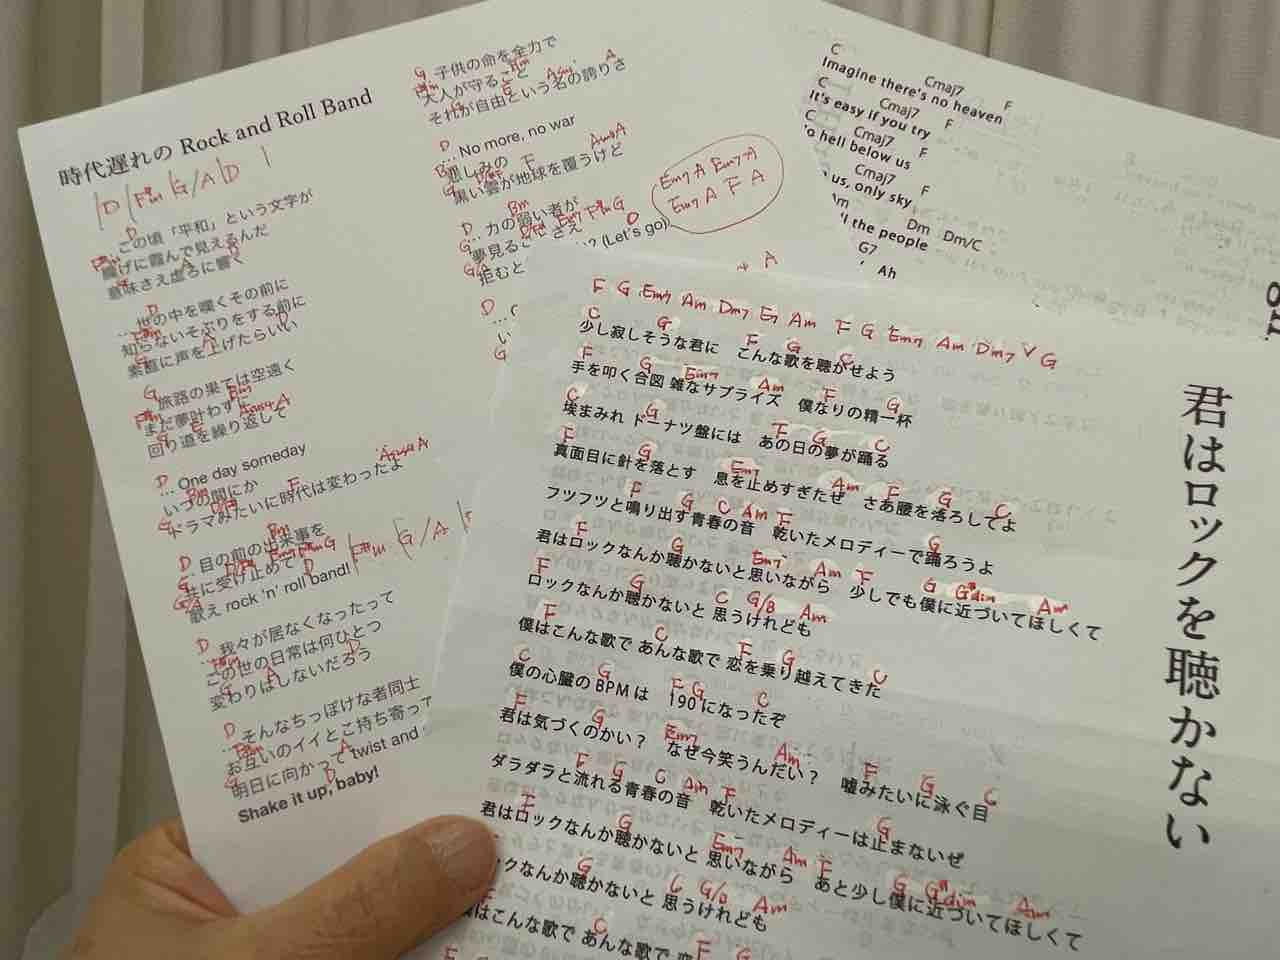 時代遅れの Rock and Roll Band
|D |F#m |G/A |D |
この頃「平和」という文字が
朧げに霞んで見えるんだ
意味さえ虚ろに響く
世の中を嘆くその前に
知らないそぶりをする前に
素直に声を上げたらいい
旅路の果ては空遠く
まだ夢叶わずに
回り道を繰り返して
One day someday
いつの間にか
ドラマみたいに時代は変わったよ
目の前の出来事を
共に受け止めて
歌え rock 'n' roll band!
F#m G/A
我々が居なくなったって
この世の日常は何ひとつ
変わりはしないだろう
そんなちっぽけな者同士
お互いのイイとこ持ち寄って
明日に向かって twist and
Shake it up, baby!
子供の命を全力で
大人が守ること
それが自由という名の誇りさ
No more, no war
悲しみの
黒い雲が地球を覆うけど
力の弱い者が
夢見ることさえ
拒むと
? (Let's go)
Em7 A Em7 A
Em7 A F A
C Cmaj7 F
Imagine there's no heaven
C Cmaj7 F
It's easy if you try
C Cmaj7 F
o hell below us
Cmaj7 F
us, only sky
Am Dm Dm/C
ll the people
G7
Ah
君はロックを聴かない
F G Em7 Am Dm7 E7 Am F G Em7 Am Dm7 V G
C G F G C
少し寂しそうな君に こんな歌を聴かせよう
F G Em7 Am F G
手を叩く合図 雑なサプライズ 僕なりの精一杯
C G F G C
埃まみれ ドーナツ盤には あの日の夢が踊る
F G Em7 Am F G C
真面目に針を落とす 息を止めすぎたぜ さあ腰を落ろしてよ
F G C Am F G
フツフツと鳴り出す青春の音 乾いたメロディーで踊ろうよ
F G Em7 Am F G G#dim Am
君はロックなんか聴かないと思いながら 少しでも僕に近づいてほしくて
F G C G/B Am
ロックなんか聴かないと 思うけれども
F C F G C
僕はこんな歌で あんな歌で 恋を乗り越えてきた
C G F G C
僕の心臓のBPMは 190になったぞ
F G Em7 Am F G C
君は気づくのかい？ なぜ今笑うんだい？ 嘘みたいに泳ぐ目
F G C Am F G
ダラダラと流れる青春の音 乾いたメロディーは止まないぜ
F G Em7 Am F G G#dim Am
君はロックなんか聴かないと 思いながら あと少し僕に近づいてほしくて
G C G/B Am
ックなんか聴かないと 思うけれども
C F G
はこんな歌で あんな歌で 恋